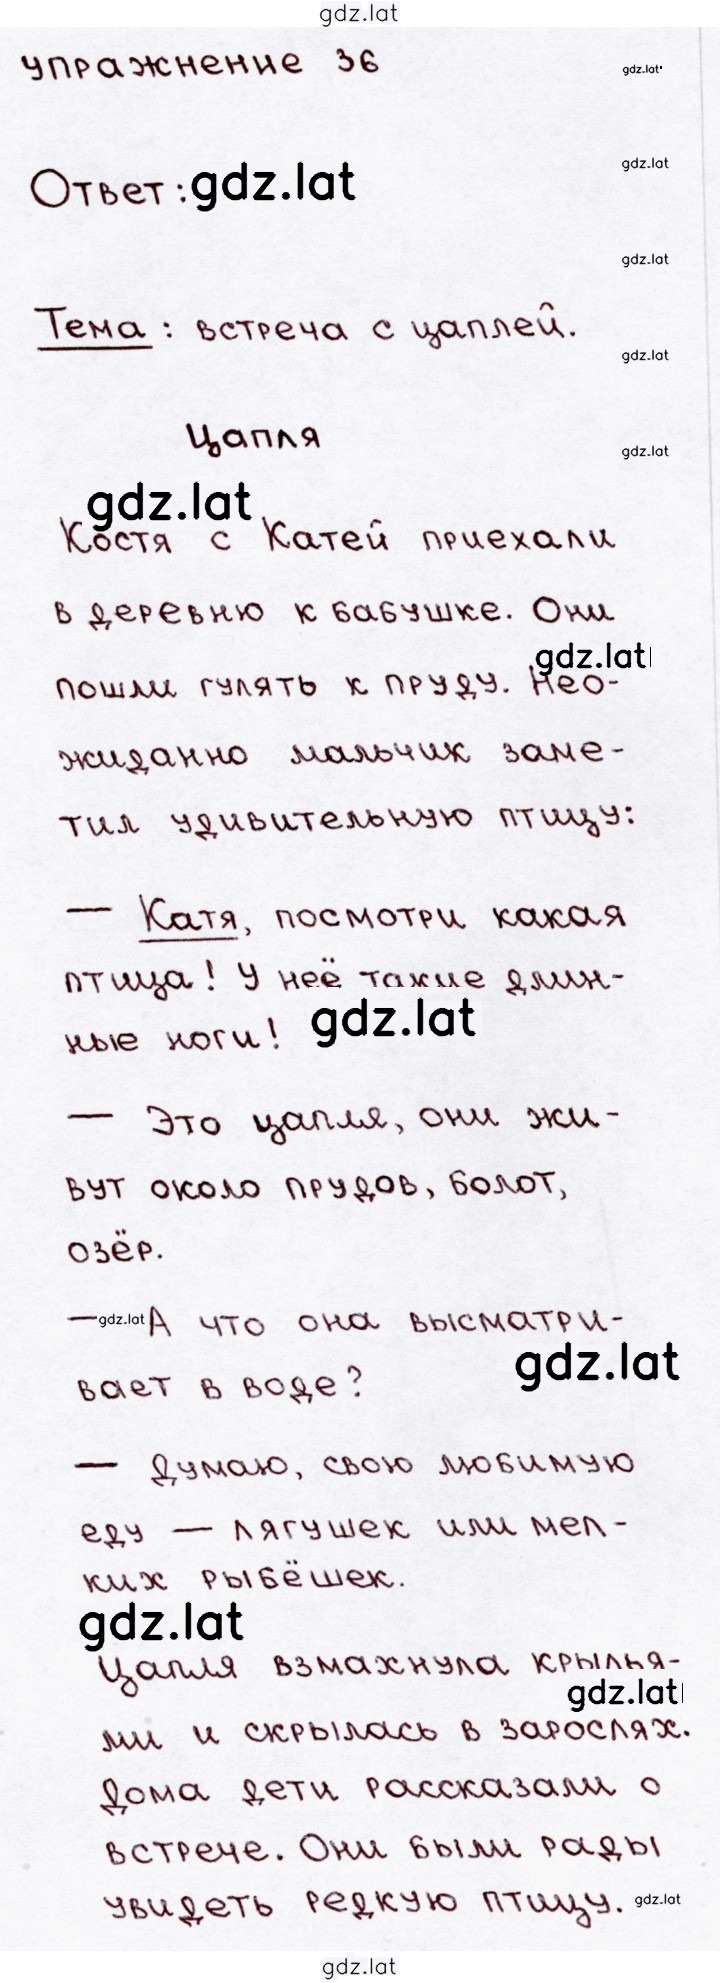 gdz.lat
упражнение 36
gdz.lat
gdz.lat
Ответ: gdz.lat
gdz.lat
Тема: встреча с цаплей.
gdz.lat
Цапля
gdz.lat
gdz.lat
Костя с Катей приехали
в деревню к бабушке. Они
gdz.lat
пошли гулять к пруду. Нео-
жиданно мальчик заме-
тил удивительную птицу:
— Катя, посмотри какая
птица! У неё такие длин-
ные ноги! gdz.lat
— Это цапля, они жи-
вут около прудов, болот,
озёр.
— gdz.lat А что она высматри-
gdz.lat
вает в воде?
— Думаю, свою любимую
еду — лягушек или мел-
ких рыбёшек.
gdz.lat
Цапля взмахнула крылья-
gdz.lat
ми и скрылась в зарослях.
Дома дети рассказали о
встрече. Они были рады
увидеть редкую птицу. gdz.lat
gdz.lat